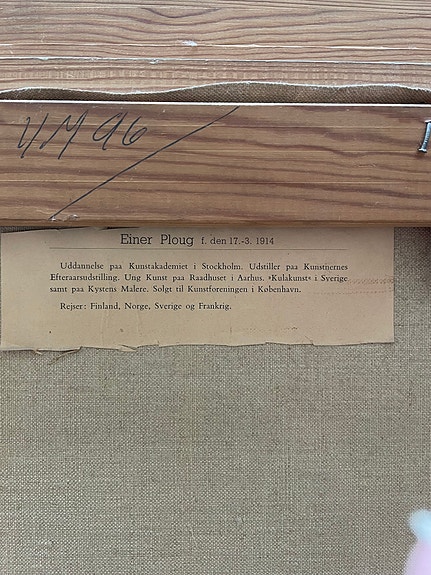 4M96
Einer Ploug f. den 17.-3. 1914
Uddannelse paa Kunstakademiet i Stockholm. Udstiller paa Kunstnernes
Efteraarsudstilling. Ung Kunst paa Raadhuset i Aarhus. »Kulakunst« i Sverige
samt paa Kystens Malere. Solgt til Kunstforeningen i København.
Rejser: Finland, Norge, Sverige og Frankrig.